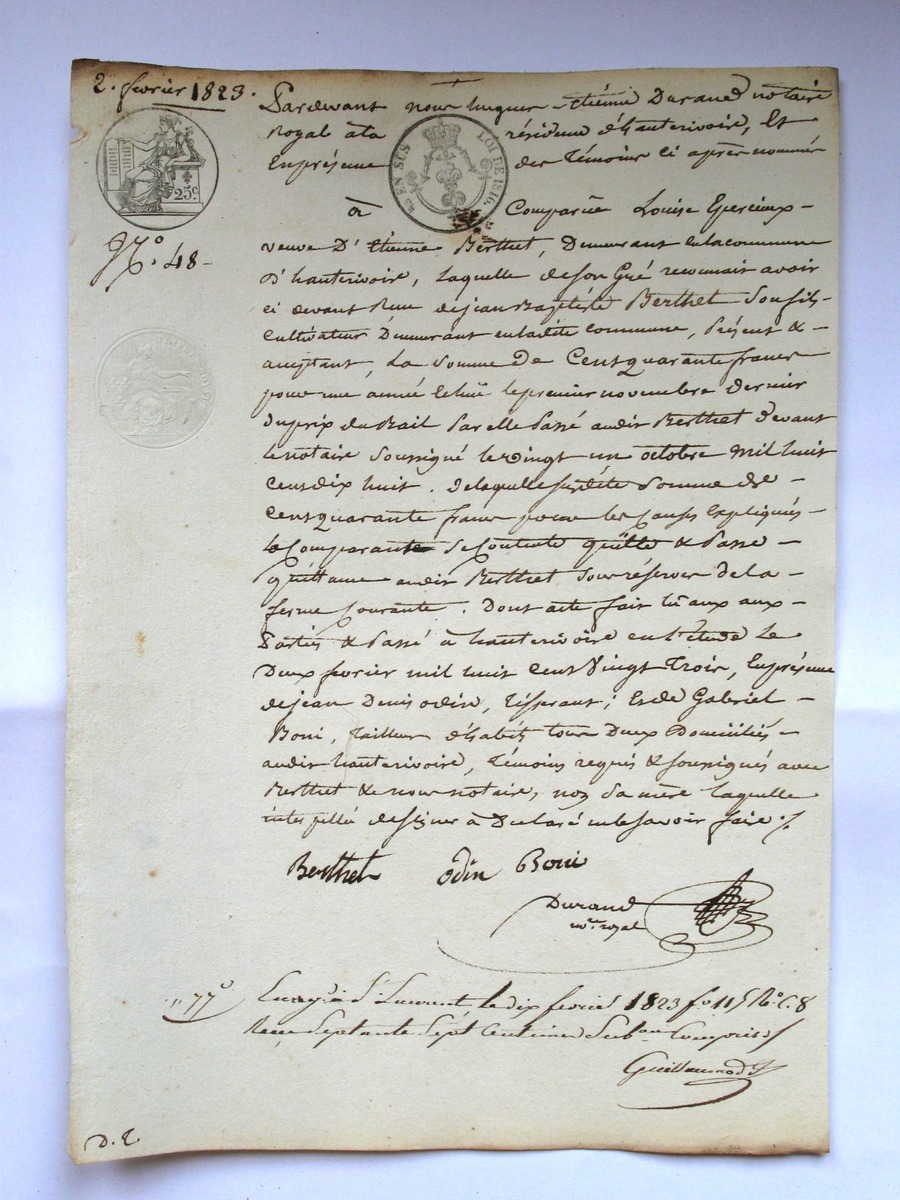 2. fevrier 1823.
Pardevant nous hugues Etienne Durand notaire
Royal à la résidence d'hauterivoire, Et
En présence des témoins ci après nommés
25c
EN SUS LOI DE 1816.
a Comparüe Louise
N.o 48
veuve D'Etienne Berthet, Demeurant en la commune
d'hauterivoire, laquelle de son Gré reconnait avoir
ci devant Reçu de jean Baptiste Berthet Son fils
Cultivateur Demeurant en ladite commune, présent &
acceptant, La Somme De Cent quarante francs
pour une année Echüe le premier novembre dernier
du prix du Bail Par elle Passé audit Berthet devant
le notaire Soussigné le vingt un octobre mil huit
Cent dix huit. de laquelle susdite Somme de
Cent quarante francs pour les Causes Expliqués
la Comparante Se Contente quitte & Passe
quittance audit Berthet Sous réserves de la
ferme Courante. Dont acte fait lû aux aux
Parties & Passé à hauterivoire en l'étude Le
Deux fevrier mil huit Cent Vingt Trois, En présence
de jean Denis odin, tisserant; Et de Gabriel
Boni, tailleur d'habits tous Deux Domiciliés
audit hauterivoire, Témoins requis & soussignés avec
Berthet & nous notaire, non Sa mère laquelle
interpellé de signer à Déclaré ne le savoir faire ./.
Berthet odin Boni
Durand
no.re royal
77c Enreg.é à St Laurent le dix fevrier 1823 f.o 115 R.o C. 8
Reçu Septante Sept Centimes Sub.on Comprise
Guillaumod
D. E.